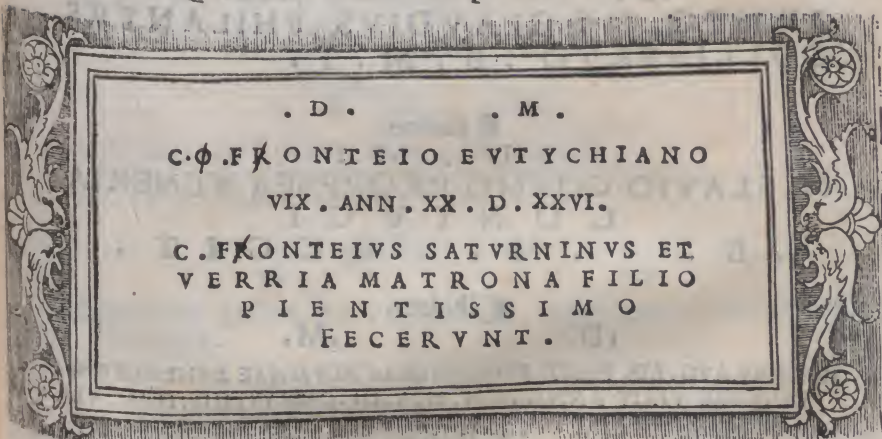 . D . . M .
C.φ.FRONTEIO EVTYCHIANO
VIX . ANN . XX . D . XXVI.
C . FRONTEIVS SATVRNINVS ET
VERRIA MATRONA FILIO
PIENTISSIMO
FECERVNT .